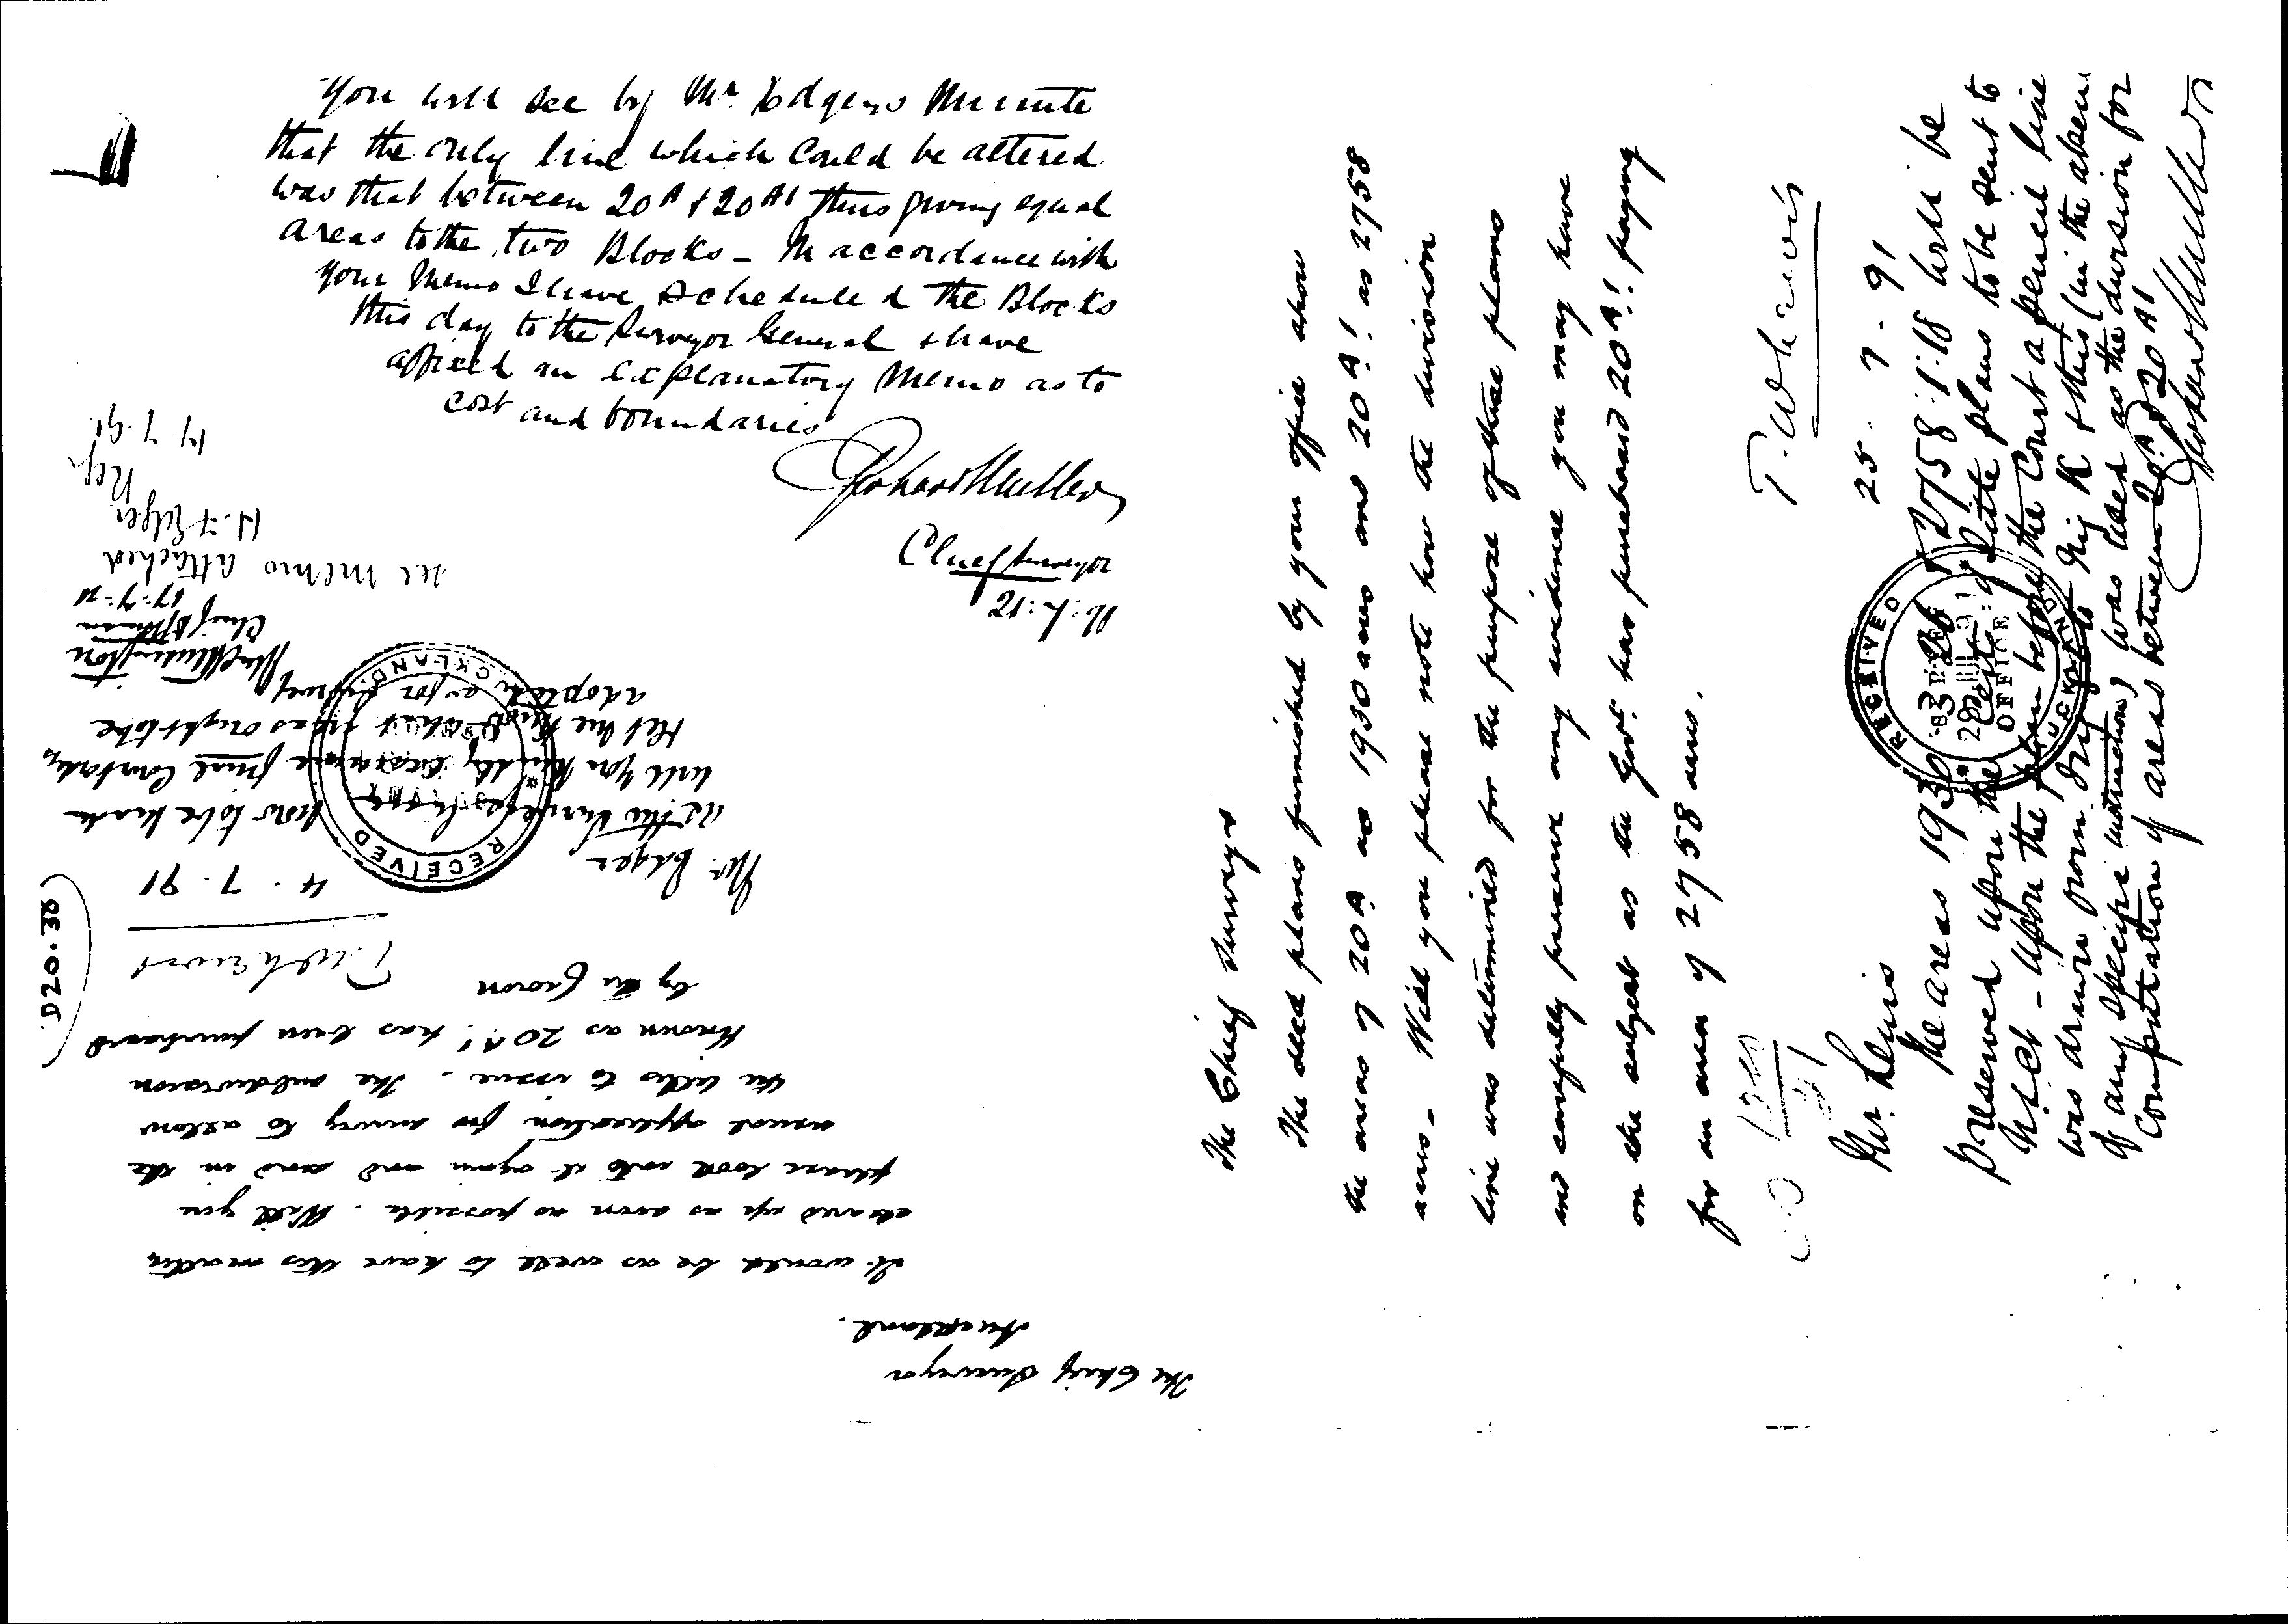 You will see by Mr Edgers Minute
that the only line which could be altered
was that between 20A & 20A1 thus giving equal
areas to the two Blocks – In accordance with
your Memo I have scheduled the Blocks
this day to the Surveyor General & have
affixed an explanatory Memo as to
cost and boundaries
Gerhard Mueller
Chief Surveyor
D20.38
The Chief Surveyor
Auckland.
It would be as well to have this matter
cleared up as soon as possible. Will you
please look into it again and send in the
usual application for survey to allow
the titles to issue. The subdivision
known as 20A1 has been purchased
by the Crown
T.W. Lewis
4.7.91
Mr. Edger
As the Survey has now to be made
will you kindly examine final Court orders
let me know what areas ought to be
adopted for survey
Chief Dftsman
17.7.91
RECEIVED
AUCKLAND
see memo attached
H.F. Edger
17.7.91
The Chief Surveyor
The deed plans furnished by your office show
the areas of 20A as 1930 acres and 20A1 as 2758
acres – Will you please note how the division
line was determined for the purpose of these plans
and carefully preserve any evidence you may have
on the subject as the Govt has purchased 20A1 paying
for an area of 2758 acres.
T.W. Lewis
25.7.91
Mr. Lewis
The areas 1930 & 2758.1.18 will be
preserved upon the plans to be sent to
N.L.Ct – Upon the plan before the Court a pencil line
was drawn from Trig to Trig K & this (in the absence
of any specific instructions) was used as the division for
computation of areas between 20A & 20A1
Gerhard Mueller
RECEIVED
OFFICE
AUCKLAND